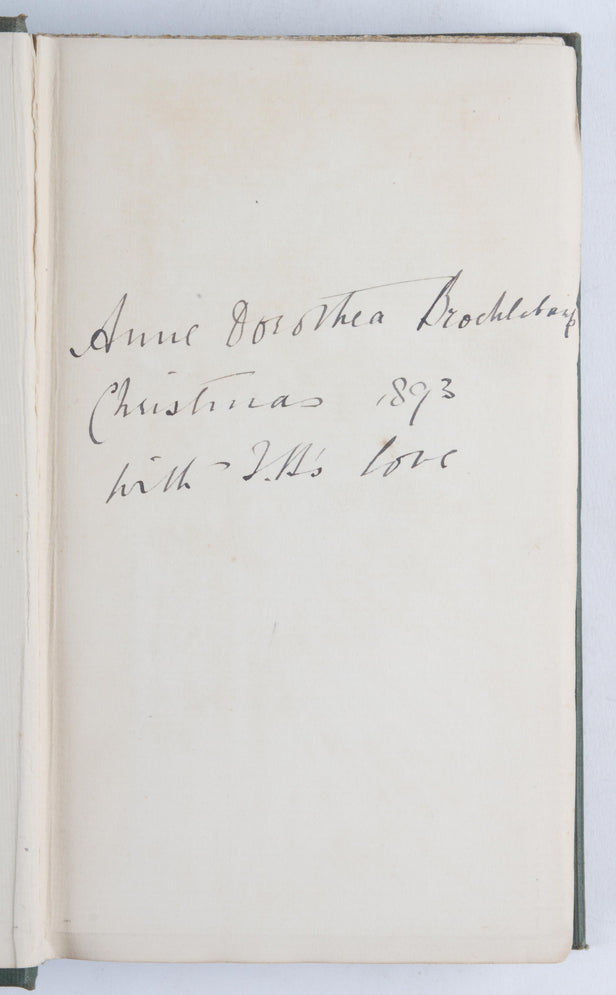 Anne Dorothea Brocklebank
Christmas 1893
With J.B's love